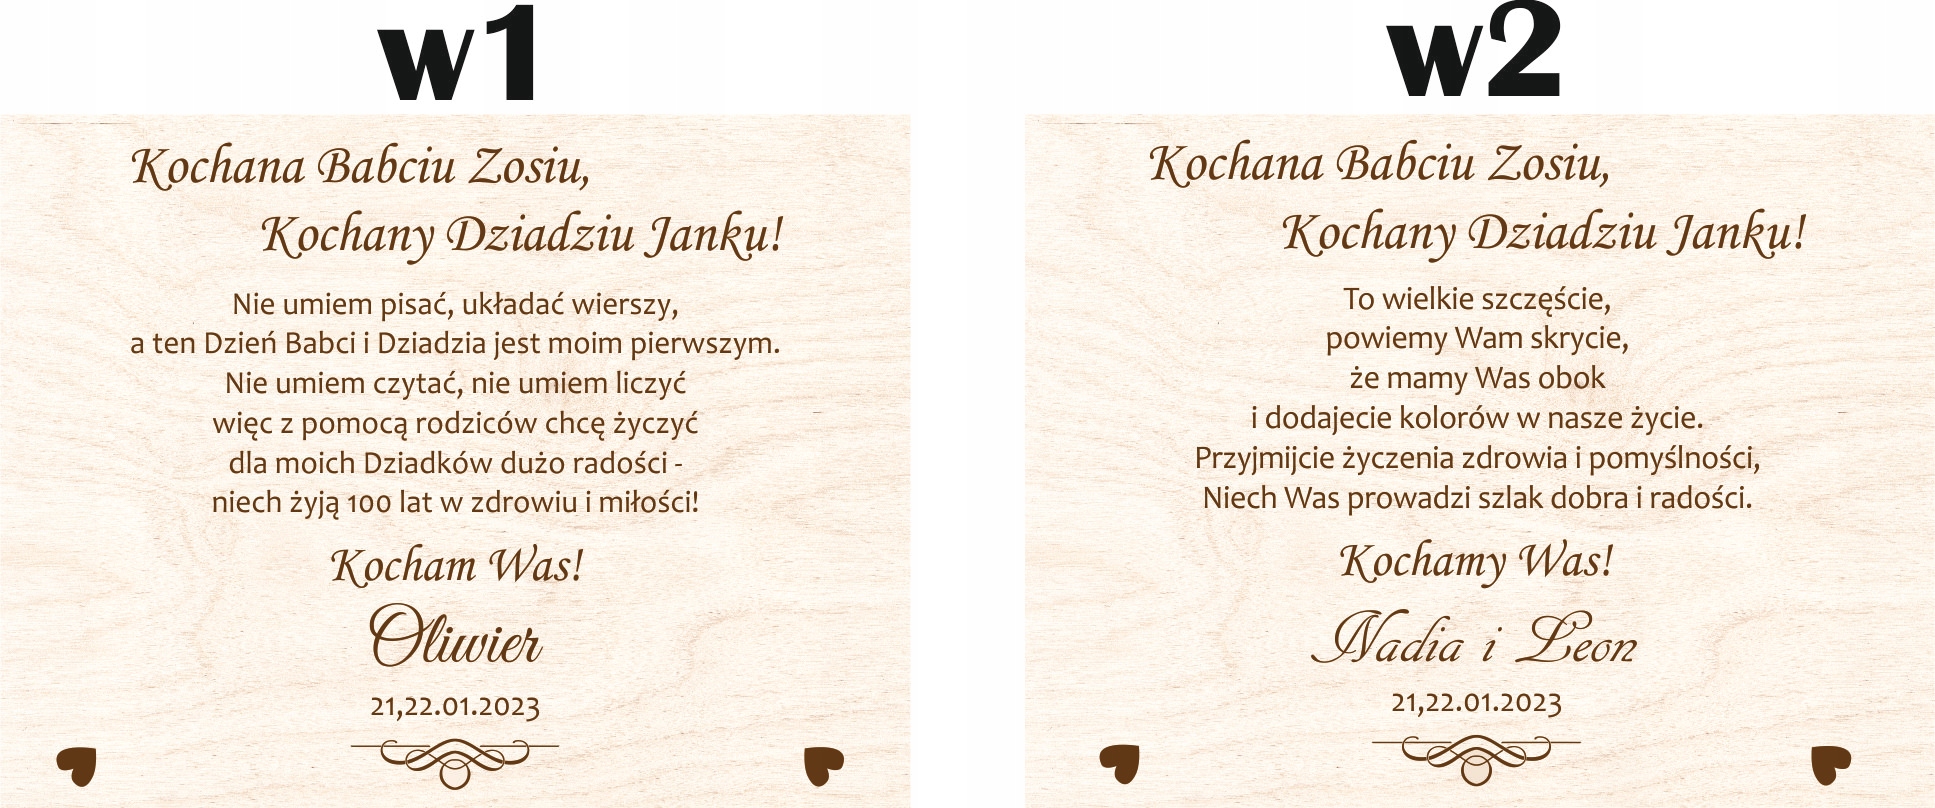 w1
Kochana Babciu Zosiu,
Kochany Dziadziu Janku!
Nie umiem pisać, układać wierszy,
a ten Dzień Babci i Dziadzia jest moim pierwszym.
Nie umiem czytać, nie umiem liczyć
więc z pomocą rodziców chcę życzyć
dla moich Dziadków dużo radości -
niech żyją 100 lat w zdrowiu i miłości!
Kocham Was!
Oliwier
21,22.01.2023
w2
Kochana Babciu Zosiu,
Kochany Dziadziu Janku!
To wielkie szczęście,
powiemy Wam skrycie,
że mamy Was obok
i dodajecie kolorów w nasze życie.
Przyjmijcie życzenia zdrowia i pomyślności,
Niech Was prowadzi szlak dobra i radości.
Kochamy Was!
Nadia i Leon
21,22.01.2023